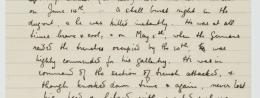 on June 14th — a shell burst right in the
dugout, & he was killed instantly. He was at all
times brave & cool, & on May 5th, when the Germans
raided the trenches occupied by the 10th, he was
highly commended for his gallantry. He was in
command of the section of trench attacked, &
though knocked down time & again, never lost
his head &